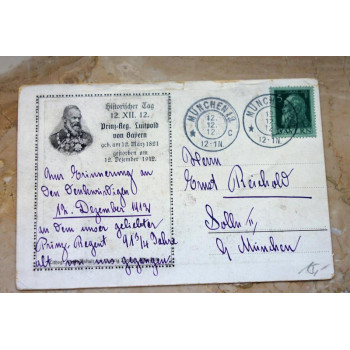 Historischer Tag
12. XII. 12.
Prinz-Reg. Luitpold
von Bayern
geb. am 12. März 1821
gestorben am
12. Dezember 1912.
Zur Erinnerung an
den denkwürdigen
12. Dezember 1912
an dem unser geliebter
Prinz Regent 91 3/4 Jahre
alt von uns gegangen.
MÜNCHEN
12.
12.
12
C
12-1N.
MÜNCHEN
12.
12.
12-1N.
BAYERN
Herrn
Ernst Reichold
Solln II,
b/ München